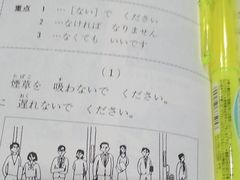 重点 1 …[ない]で ください
2 …なければ なりません
3 …なくても いいです
(1)
たばこ す
煙草を 吸わないで ください。
おく
に 遅れないで ください。